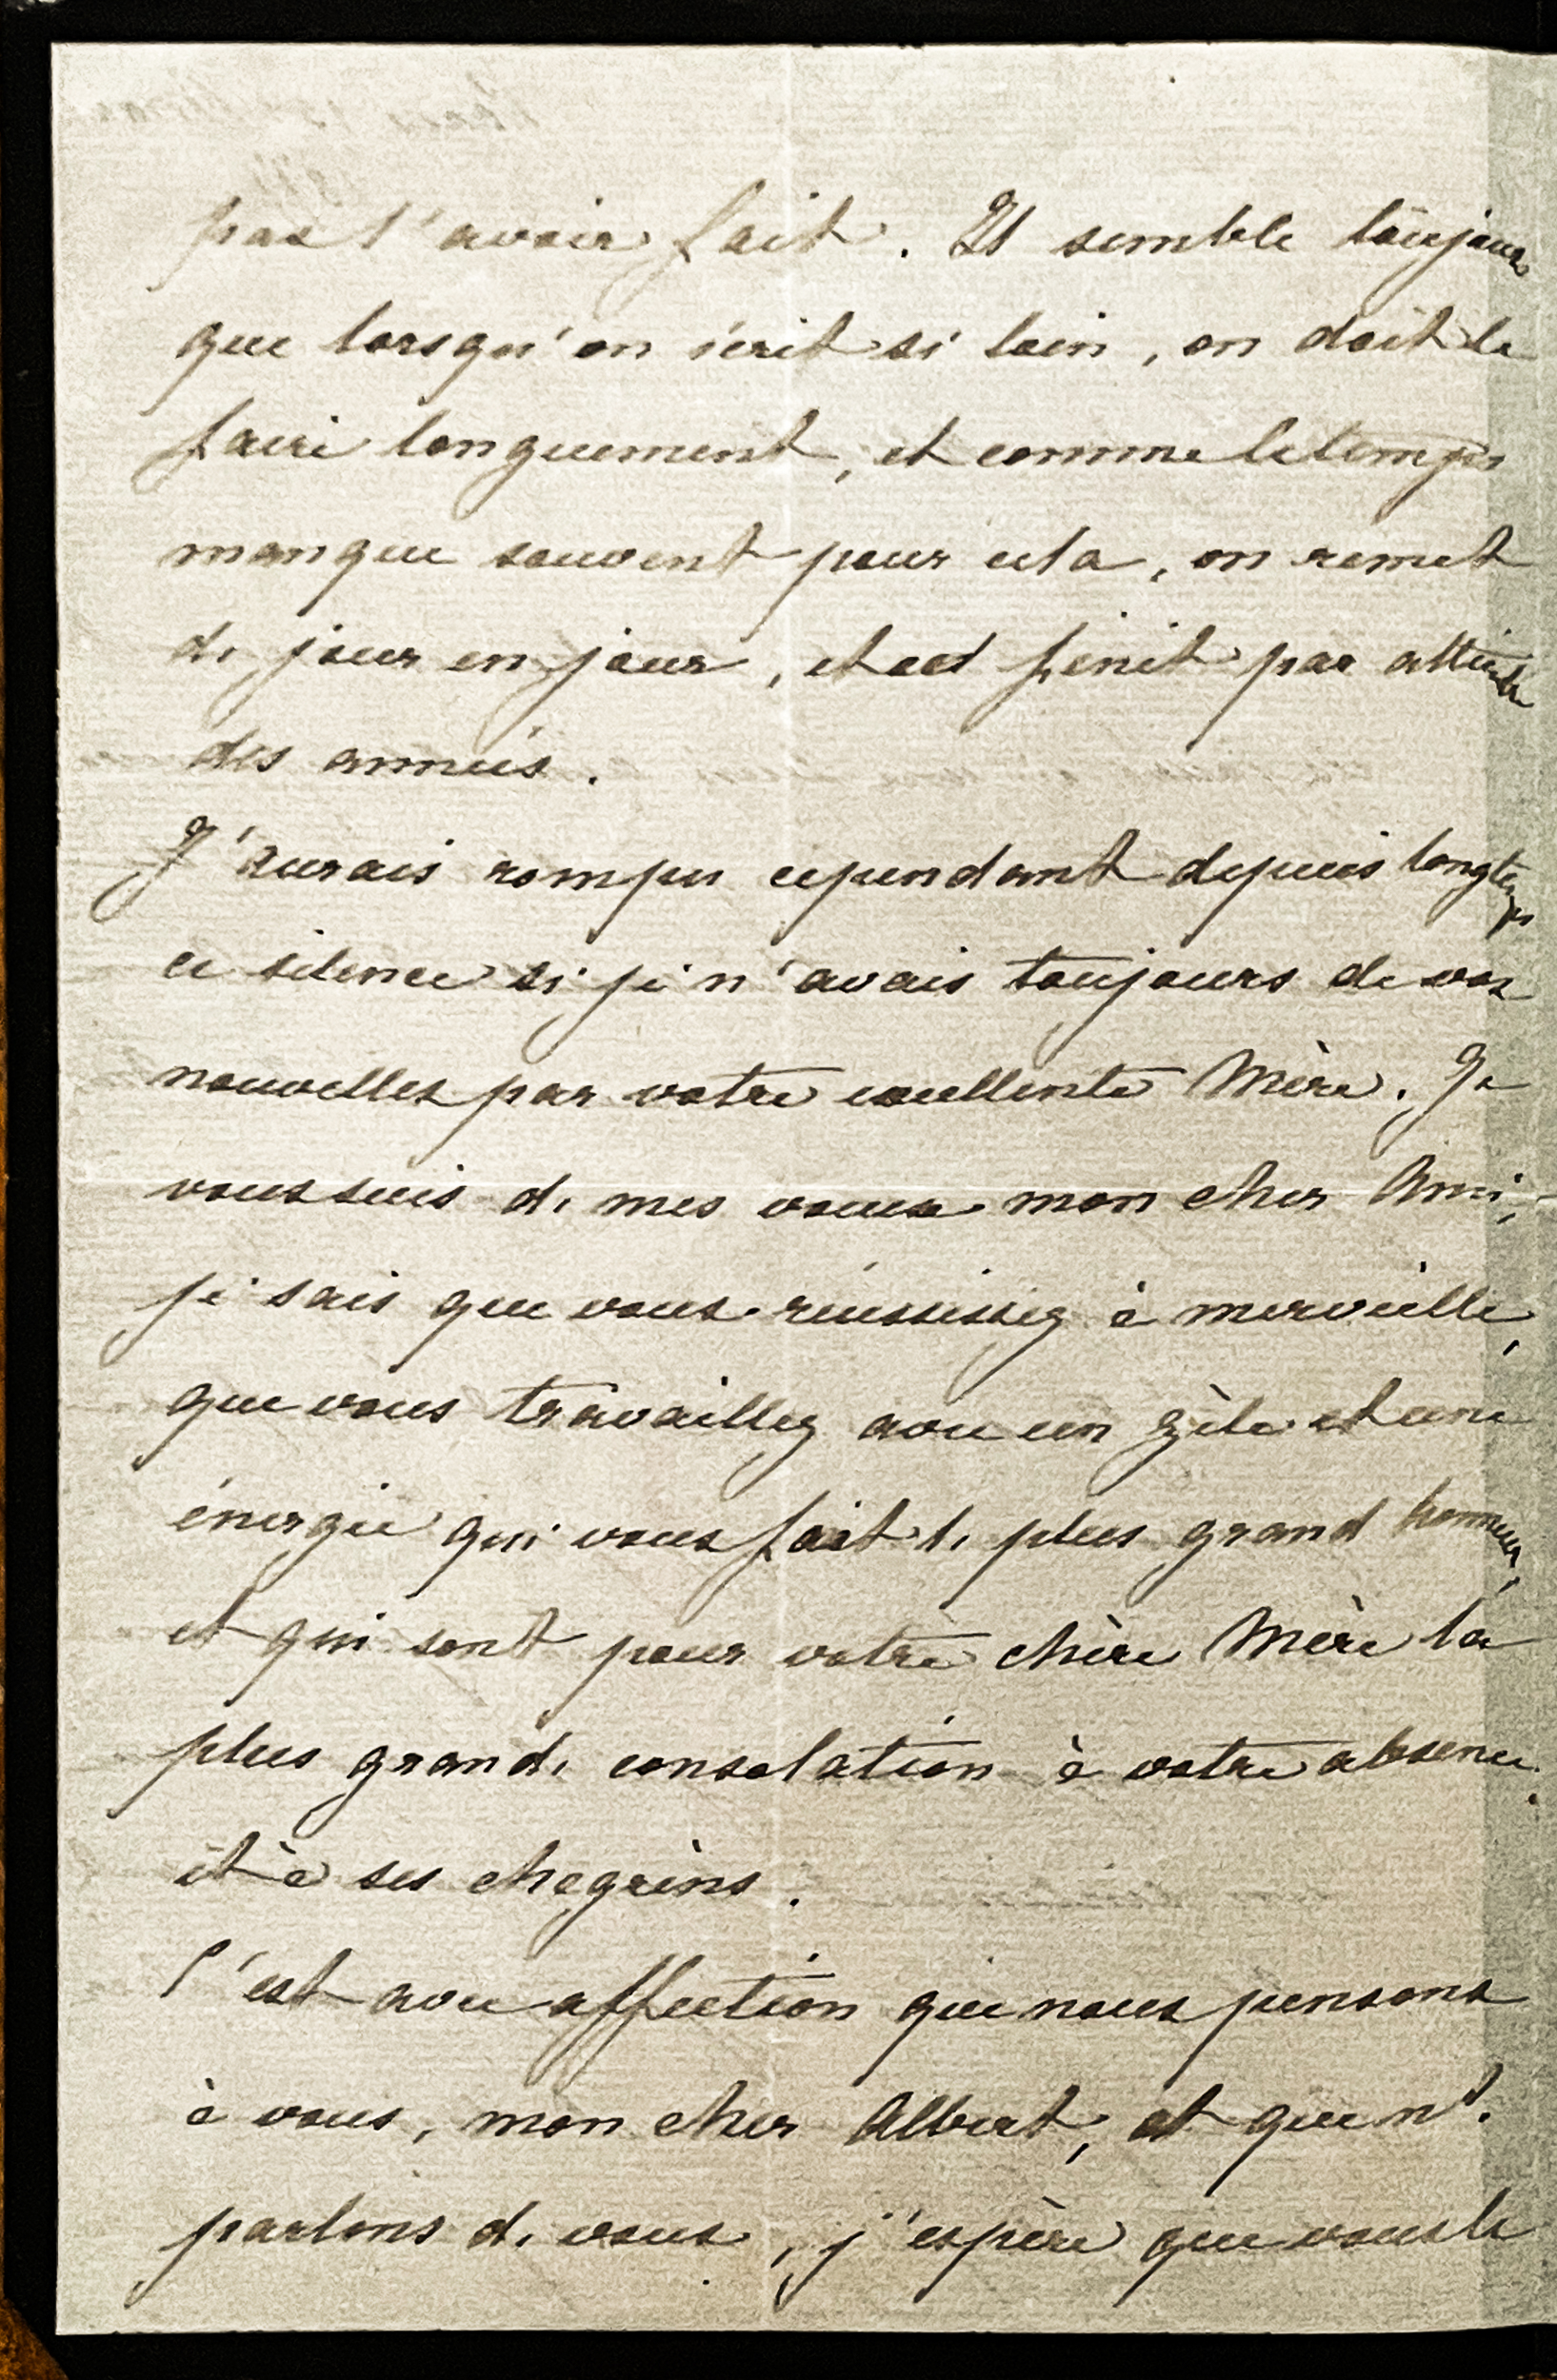 pas l'avoir fait. Il semble toujours
que lorsqu'on écrit si loin, on doit le
faire longuement, et comme le temps
manque souvent pour cela, on remet
de jour en jour, et on finit par attendre
des années.
J'aurais rompu cependant depuis longtemps
ce silence si je n'avais toujours de vos
nouvelles par votre excellente Mère. Je
vous suis de mes vœux mon cher Ami,
je sais que vous réussissez à merveille,
que vous travaillez avec un zèle et une
énergie qui vous fait le plus grand honneur,
et qui sont pour votre chère Mère la
plus grande consolation à votre absence
et à ses chagrins.
C'est avec affection que nous pensons
à vous, mon cher Albert, et que ns.
parlons de vous, j'espère que vous le